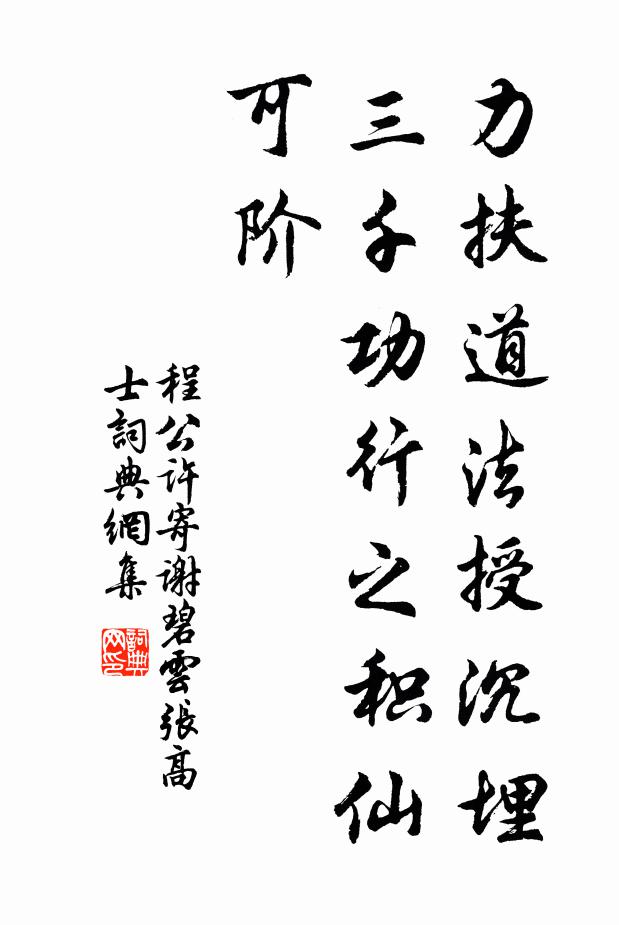 力扶道法授沉埋
三千功行之积仙
可阶
程公许寄谢碧雲張高
士詞典網集
詞典网印